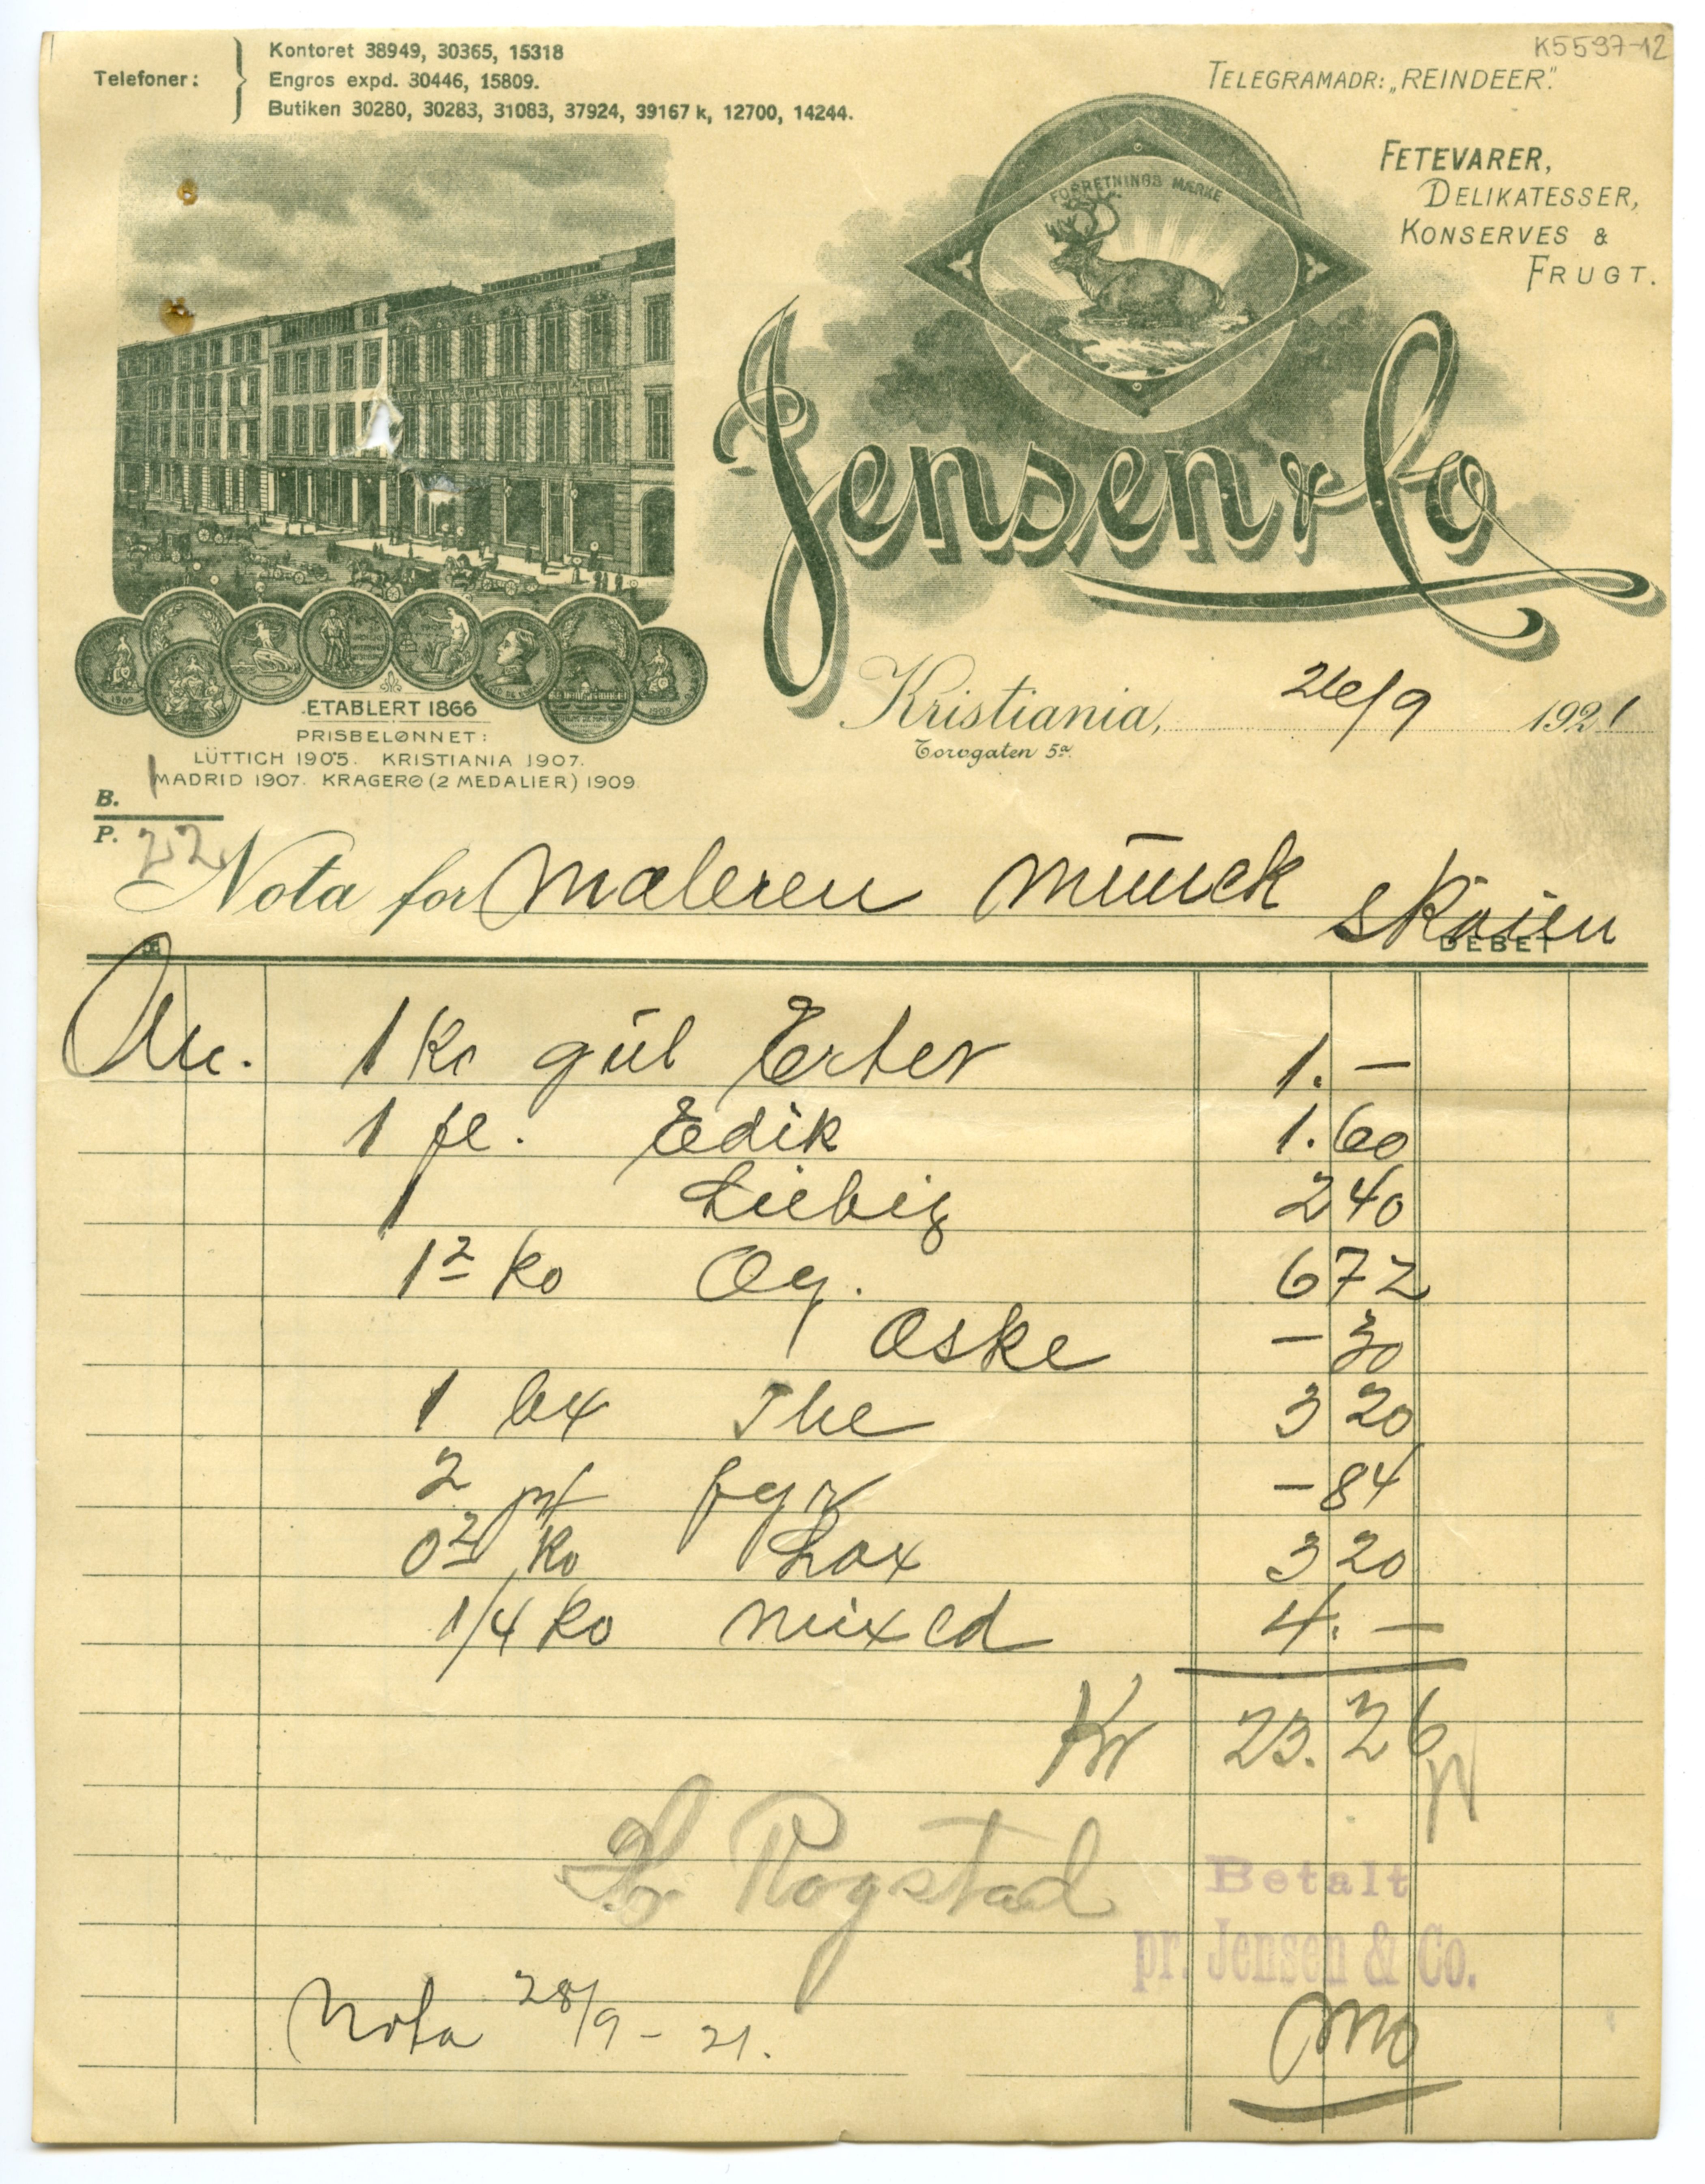 K5597-12
Telefoner:
Kontoret 38949, 30365, 15318
Engros expd. 30446, 15809.
Butiken 30280, 30283, 31083, 37924, 39167 k, 12700, 14244.
TELEGRAMADR: „REINDEER."
FETEVARER,
DELIKATESSER,
KONSERVES &
FRUGT.
FORRETNINGS MÆRKE
Jensen & Co
ETABLERT 1866
PRISBELØNNET:
LÜTTICH 1905. KRISTIANIA 1907.
MADRID 1907. KRAGERØ (2 MEDALIER) 1909
Kristiania, 26/9 1921
Torvgaten 5a.
B. 1
P. 22
Nota for Maleren Munck Skøien
DEBET
1 Ko gul Erter 1. —
1 fl. Edik 1.60
1 Liebig 2 40
1 2 Ko Og. 6 72
Æske — 30
1 bx The 3 20
2 pk fyr — 84
0 2 Ko Lax 3 20
1/4 Ko mixed 4. —
Kr 23.26
Rogstad
Betalt
pr. Jensen & Co.
Nota 28/9 - 21.